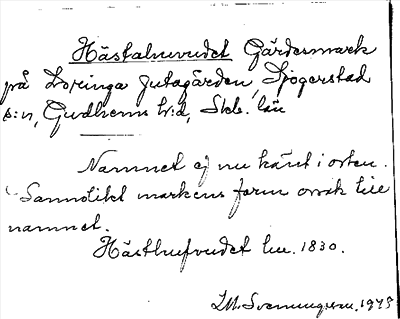 Hästahuvudet Gärdesmark
på Loringa Jutagården, Sjogerstad
s:n, Gudhems h:d, Skb. län
Namnet ej nu känt i orten.
Sannolikt markens form orsak till
namnet.
Hästhufvudet lm. 1830.
LM. Svenungsson. 1973